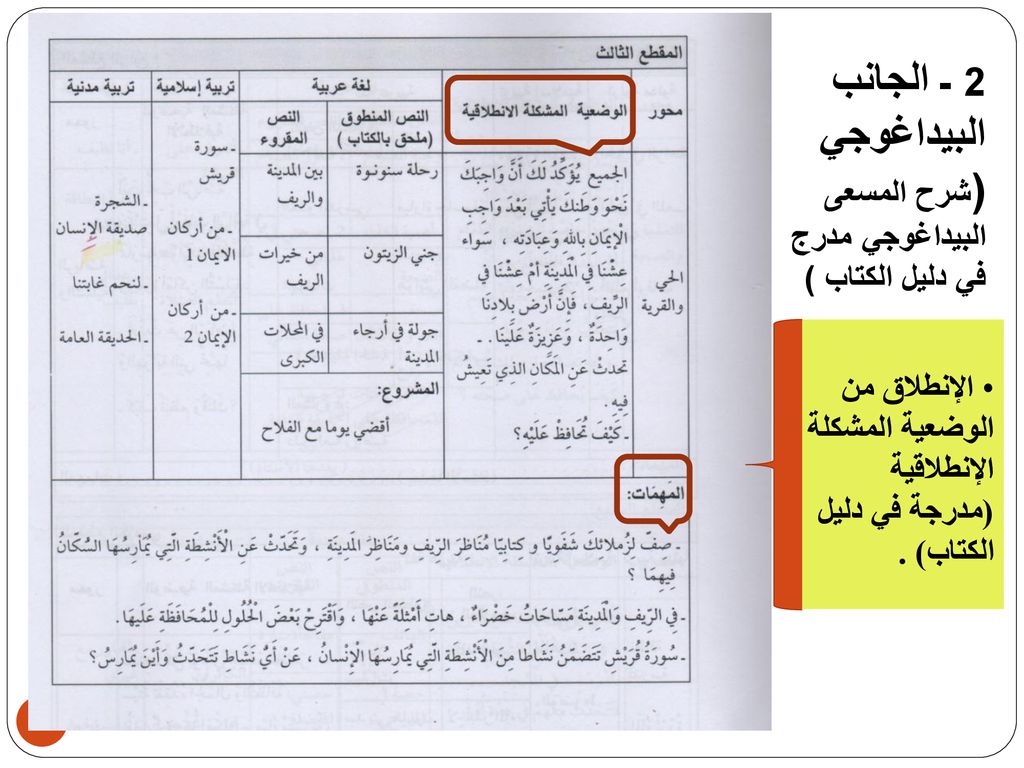 2 ـ الجانب
البيداغوجي
(شرح المسعى
البيداغوجي مدرج
في دليل الكتاب )
• الإنطلاق من
الوضعية المشكلة
الإنطلاقية
(مدرجة في دليل
الكتاب) .
المقطع الثالث
محور
الوضعية المشكلة الانطلاقية
لغة عربية
النص المنطوق
(ملحق بالكتاب )
النص
المقروء
تربية إسلامية
تربية مدنية
الحي
والقرية
الجميع يُؤَكِّدُ لَكَ أَنَّ وَاجِبَكَ
نَحْوَ وَطَنِكَ يَأْتِي بَعْدَ وَاجِبِ
الْإِيمَانِ بِاللهِ وَعِبَادَتِه ، سَواء
عِشْنَا فِي الْمَدِينَةِ أَمْ عِشْنَا فِي
الرِّيفِ، فَإِنَّ أَرْضَ بِلَادِنَا
وَاحِدَةٌ ، وَعَزِيزَةٌ عَلَيْنَا. ـ
تحدثْ عَنِ الْمَكَانِ الذِي تَعِيشُ
فِيهِ.
ـ كَيْفَ تُحَافِظُ عَلَيْهِ؟
رحلة سنونوة
جني الزيتون
جولة في أرجاء
المدينة
بين المدينة
والريف
من خيرات
الريف
في المحلات
الكبرى
المشروع:
أقضي يوما مع الفلاح
ـ سورة
قريش
ـ من أركان
الايمان 1
ـ من أركان
الايمان 2
ـ الشجرة
صديقة الإنسان
ـ لنحم غابتنا
ـ الحديقة العامة
المَهِمَات:
ـ صفّ لزُملائكَ شفَويًا و كِتابيًا مُنَاظرَ الرّيف ومَناظرَ المَدينَة ، وَتَحَدّثْ عَنِ الْأَنْشِطَة الّتِي يُمَارِسُهَا السُّكّانُ
فِيهِمَا ؟
ـ فِي الرِّيفِ وَالْمَدِينَةِ مَسَاحَاتٌ خَضْرَاءُ ، هاتِ أَمْثِلَةً عَنْهَا ، وَاقْتَرِحْ بَعْضَ الْحُلُولِ لِلْمُحَافَظَةِ عَلَيهَا.
ـ سُورَةُ قُرَيْشٍ تَتَضَمَّنُ نَشَاطًا مِنَ الْأَنْشِطَةِ الّتِي يُمَارِسُهَا الْإِنْسَانُ ، عَنْ أَيُّ نَشَاطٍ تَتَحَدّثُ وَأَيْنَ يُمَارِسُ؟